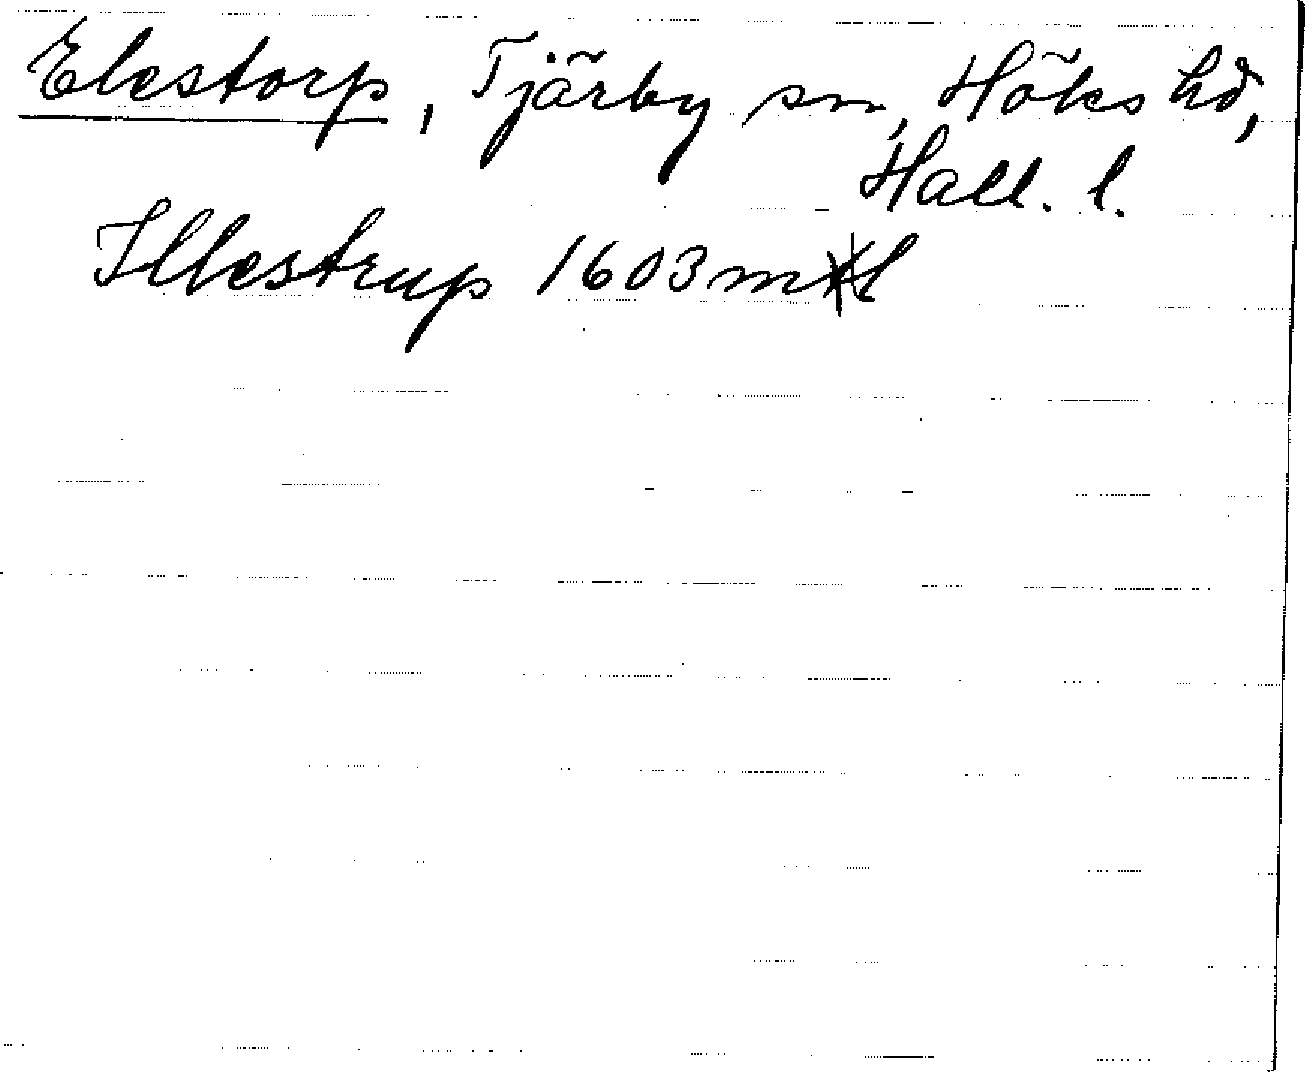 Elestorp, Tjärby sn, Höks hd,
Hall. l.
Illestrup 1603 ml